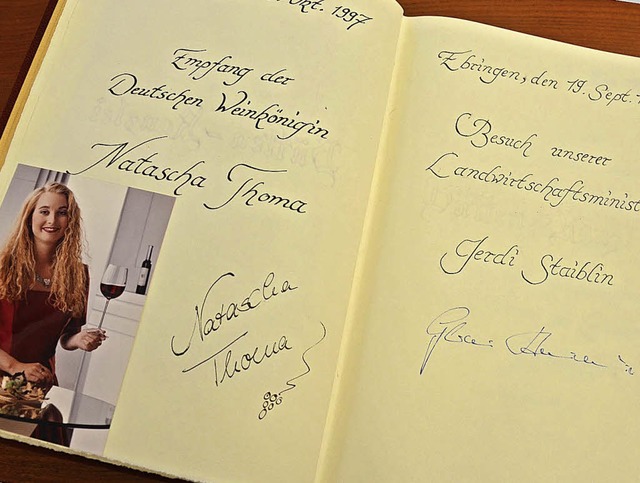 Okt. 1997
Empfang der
Deutschen Weinkönigin
Natascha Thoma
Natascha
Thoma
Ebringen, den 19. Sept.
Besuch unserer
Landwirtschaftsminist
Gerdi Staiblin